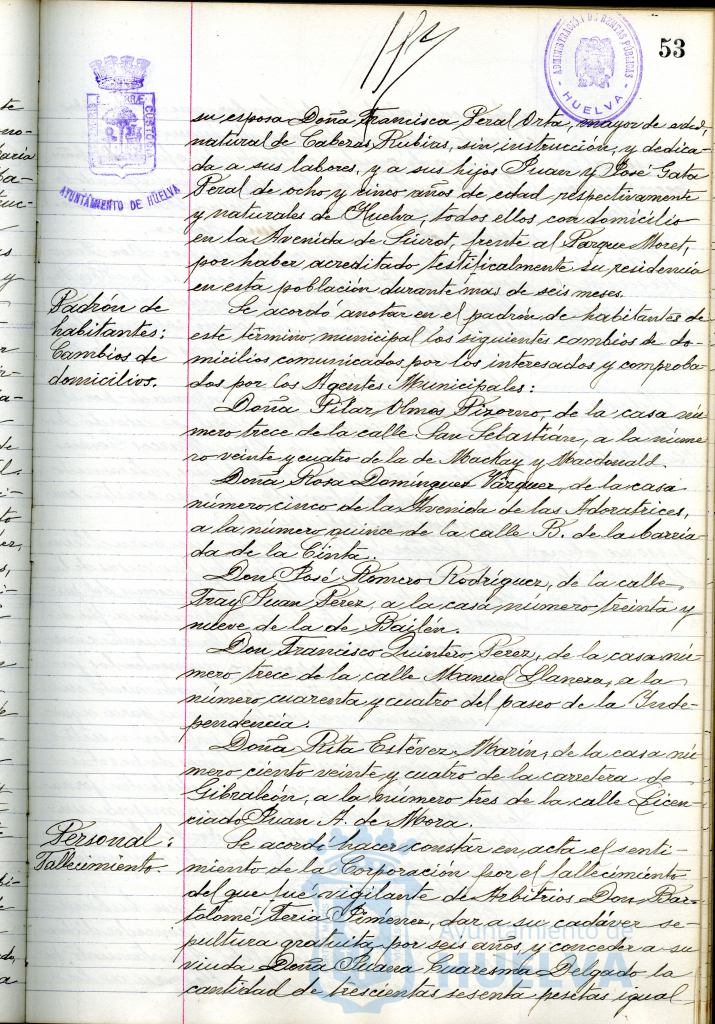 53
ADMINISTRACIÓN DE RENTAS PÚBLICAS
HUELVA
AYUNTAMIENTO DE HUELVA
su esposa Doña Francisca Peral Orta, mayor de edad,
natural de Cabezas Rubias, sin instrucción, y dedica-
da a sus labores, y a sus hijos Juan y José Gata
Peral de ocho y cinco años de edad respectivamente
y naturales de Huelva, todos ellos con domicilio
en la Avenida de Siurot, frente al Parque Moret,
por haber acreditado testificalmente su residencia
en esta población durante mas de seis meses.
Padrón de
habitantes:
Cambios de
domicilios.
Se acordó anotar en el padrón de habitantes de
este término municipal los siguientes cambios de do-
micilios comunicados por los interesados y comproba-
dos por los Agentes Municipales:
Doña Pilar Olmos Pizorno, de la casa nú-
mero trece de la calle San Sebastián, a la núme-
ro veinte y cuatro de la de Mackay y Macdonald.
Doña Rosa Domínguez Vázquez, de la casa
número cinco de la Avenida de las Adoratrices,
a la número quince de la calle B. de la barria-
da de la Cinta.
Don José Romero Rodríguez, de la calle
Fray Juan Pérez, a la casa número treinta y
nueve de la de Bailén.
Don Francisco Quintero Pérez, de la casa nú-
mero trece de la calle Manuel Llanera, a la
número cuarenta y cuatro del paseo de la Inde-
pendencia.
Doña Rita Estévez Marín, de la casa nú-
mero ciento veinte y cuatro de la carretera de
Gibraleón, a la número tres de la calle Licen-
ciado Juan A. de Mora.
Personal:
Fallecimiento.
Se acordó hacer constar en acta el senti-
miento de la Corporación por el fallecimiento
del que fué vigilante de Arbitrios Don Bar-
tolomé Feria Jiménez, dar a su cadáver se-
pultura gratuita por seis años, y conceder a su
viuda Doña Juana Cuaresma Delgado la
cantidad de trescientas sesenta pesetas igual
Ayuntamiento de
HUELVA